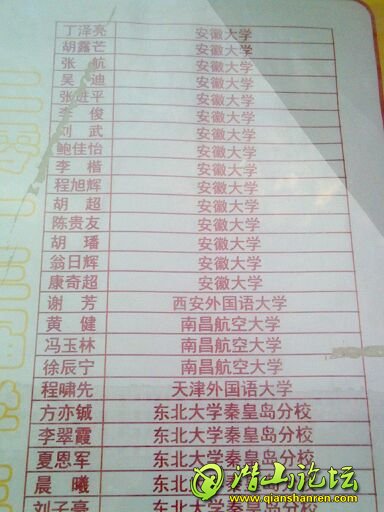 丁泽亮 安徽大学
胡露芒 安徽大学
张 航 安徽大学
吴 迪 安徽大学
张进平 安徽大学
李 俊 安徽大学
刘 武 安徽大学
鲍佳怡 安徽大学
李 楷 安徽大学
程旭辉 安徽大学
胡 超 安徽大学
陈贵友 安徽大学
胡 璠 安徽大学
翁日辉 安徽大学
康奇超 安徽大学
谢 芳 西安外国语大学
黄 健 南昌航空大学
冯玉林 南昌航空大学
徐辰宁 南昌航空大学
程啸先 天津外国语大学
方亦铖 东北大学秦皇岛分校
李翠霞 东北大学秦皇岛分校
夏恩军 东北大学秦皇岛分校
晨 曦 东北大学秦皇岛分校
刘子豪
潜山论坛
www.qianshanren.com